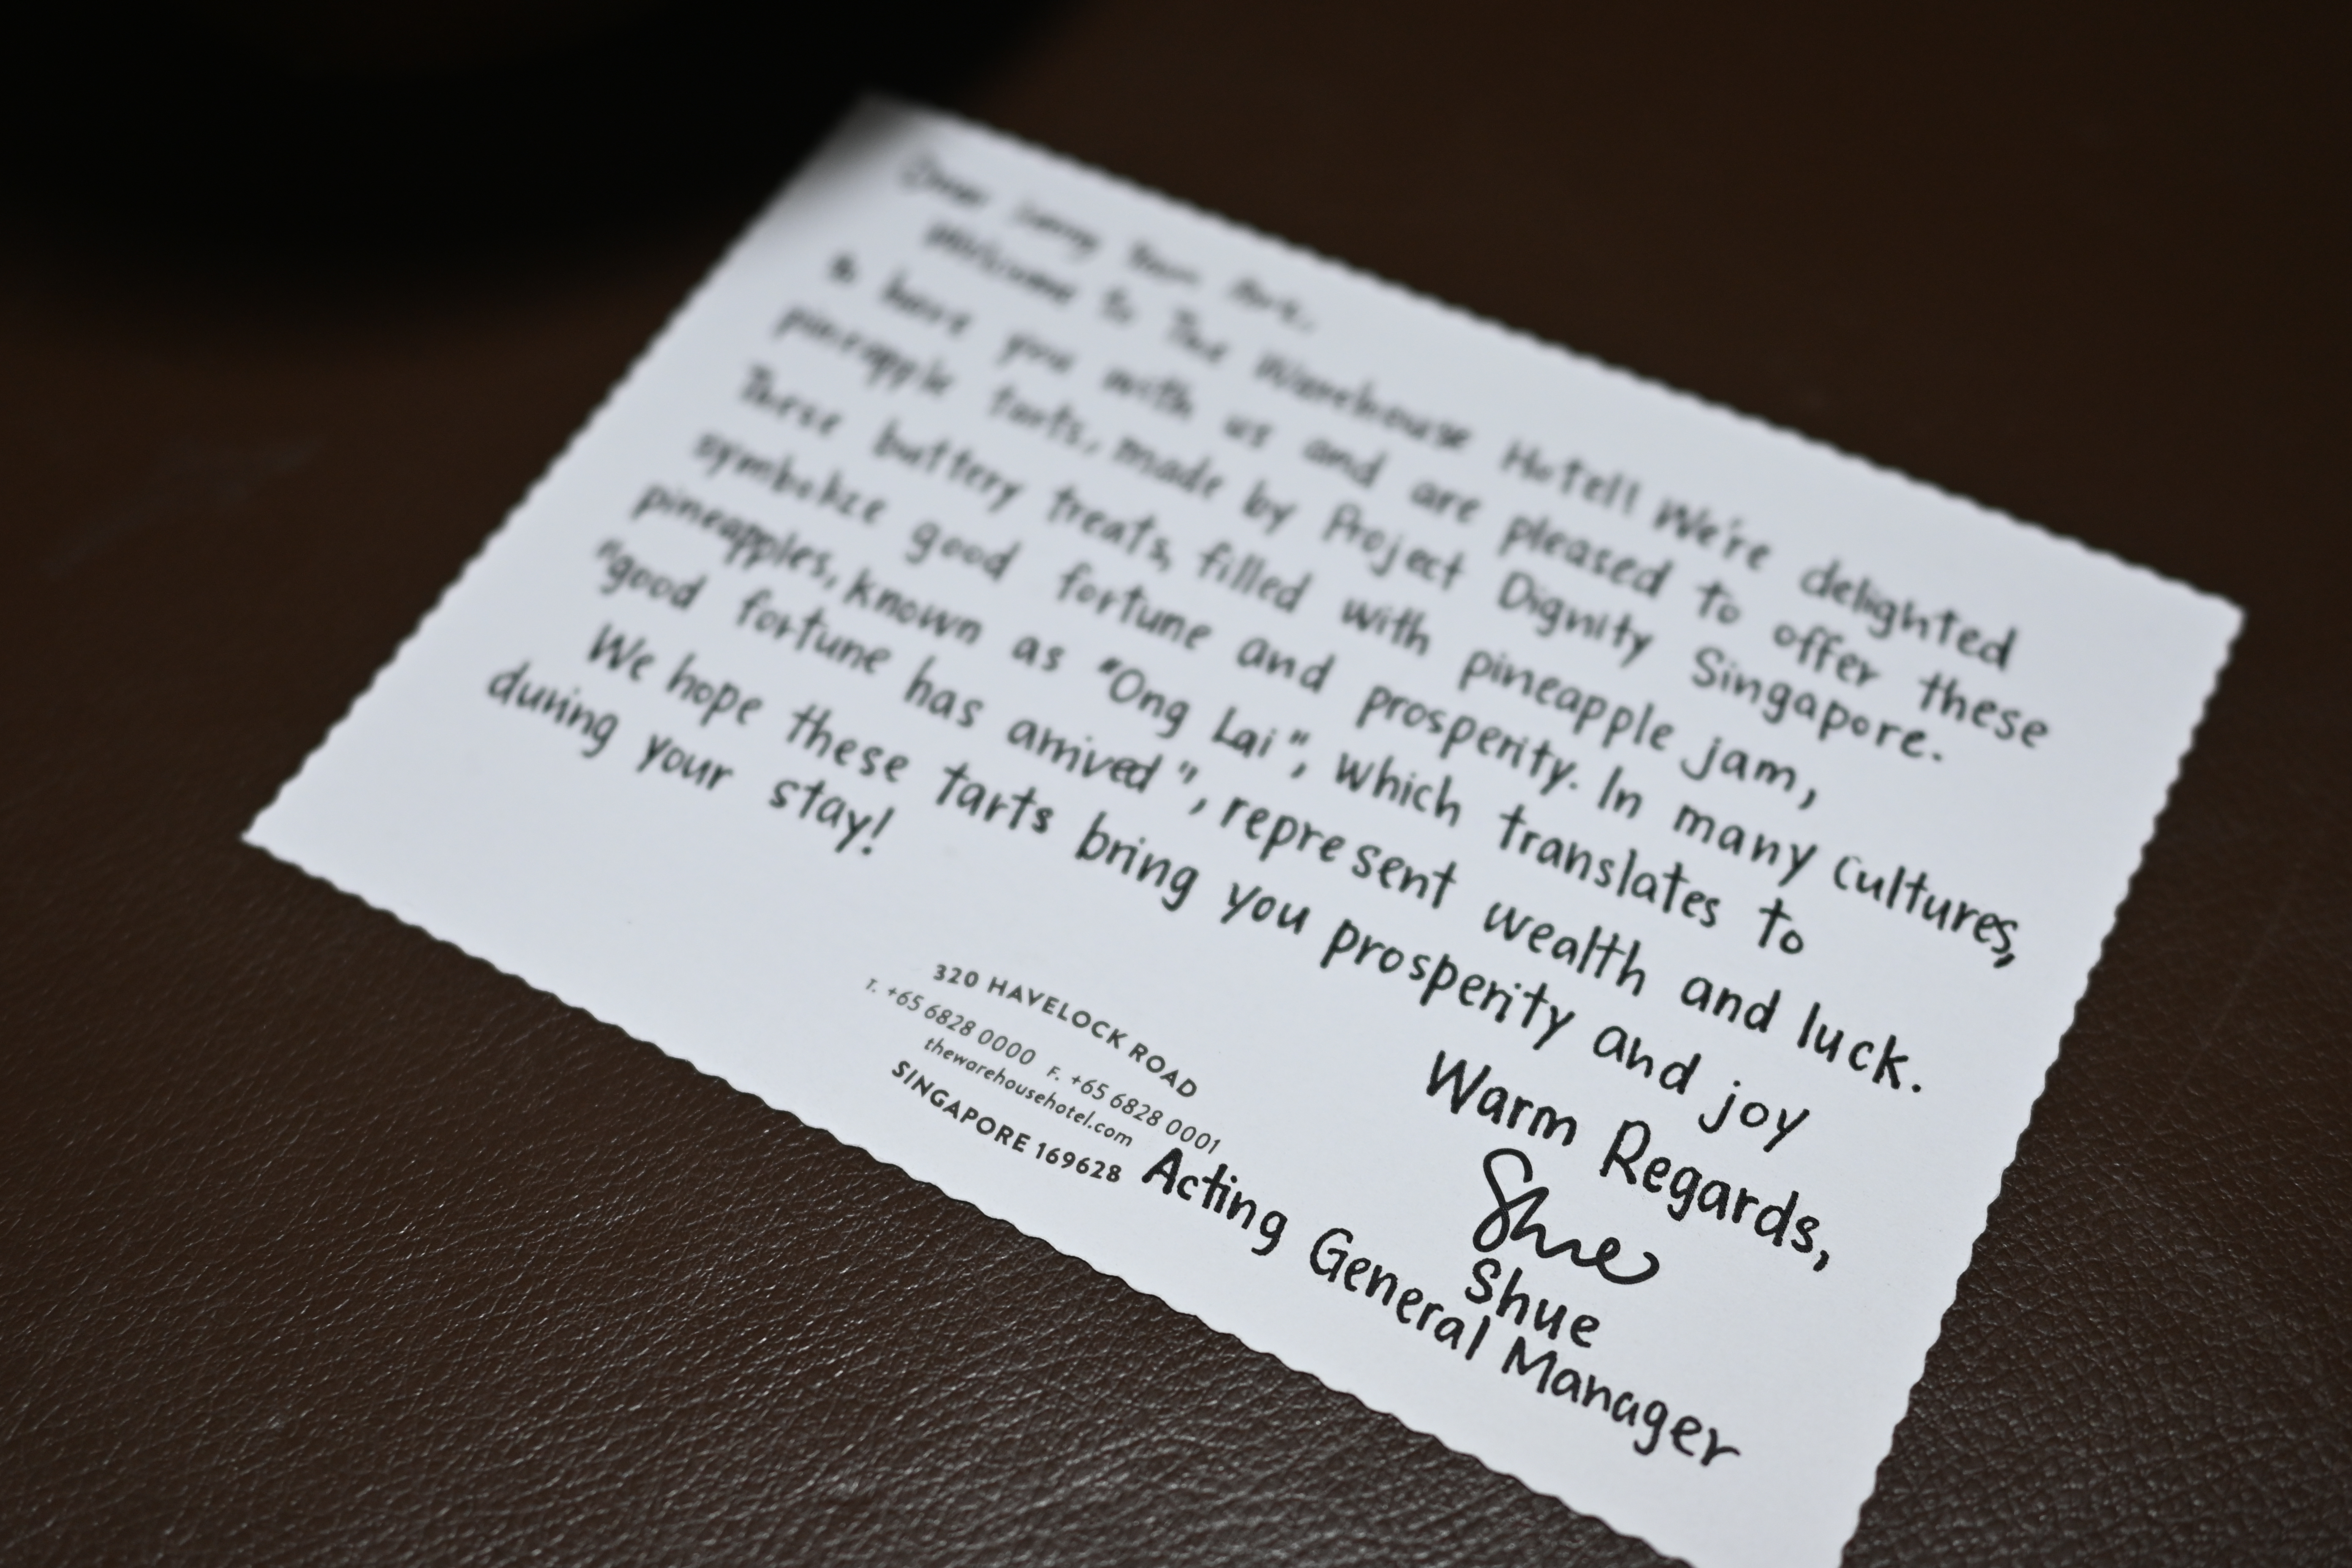 Dear
Welcome to The Warehouse Hotel! We're delighted
to have you with us and are pleased to offer these
pineapple tarts, made by Project Dignity Singapore.
These buttery treats, filled with pineapple jam,
symbolize good fortune and prosperity. In many cultures,
pineapples, known as "Ong Lai", which translates to
"good fortune has arrived", represent wealth and luck.
We hope these tarts bring you prosperity and joy
during your stay!
Warm Regards,
Shue
Shue
Acting General Manager
320 HAVELOCK ROAD
T. +65 6828 0000 F. +65 6828 0001
thewarehousehotel.com
SINGAPORE 169628